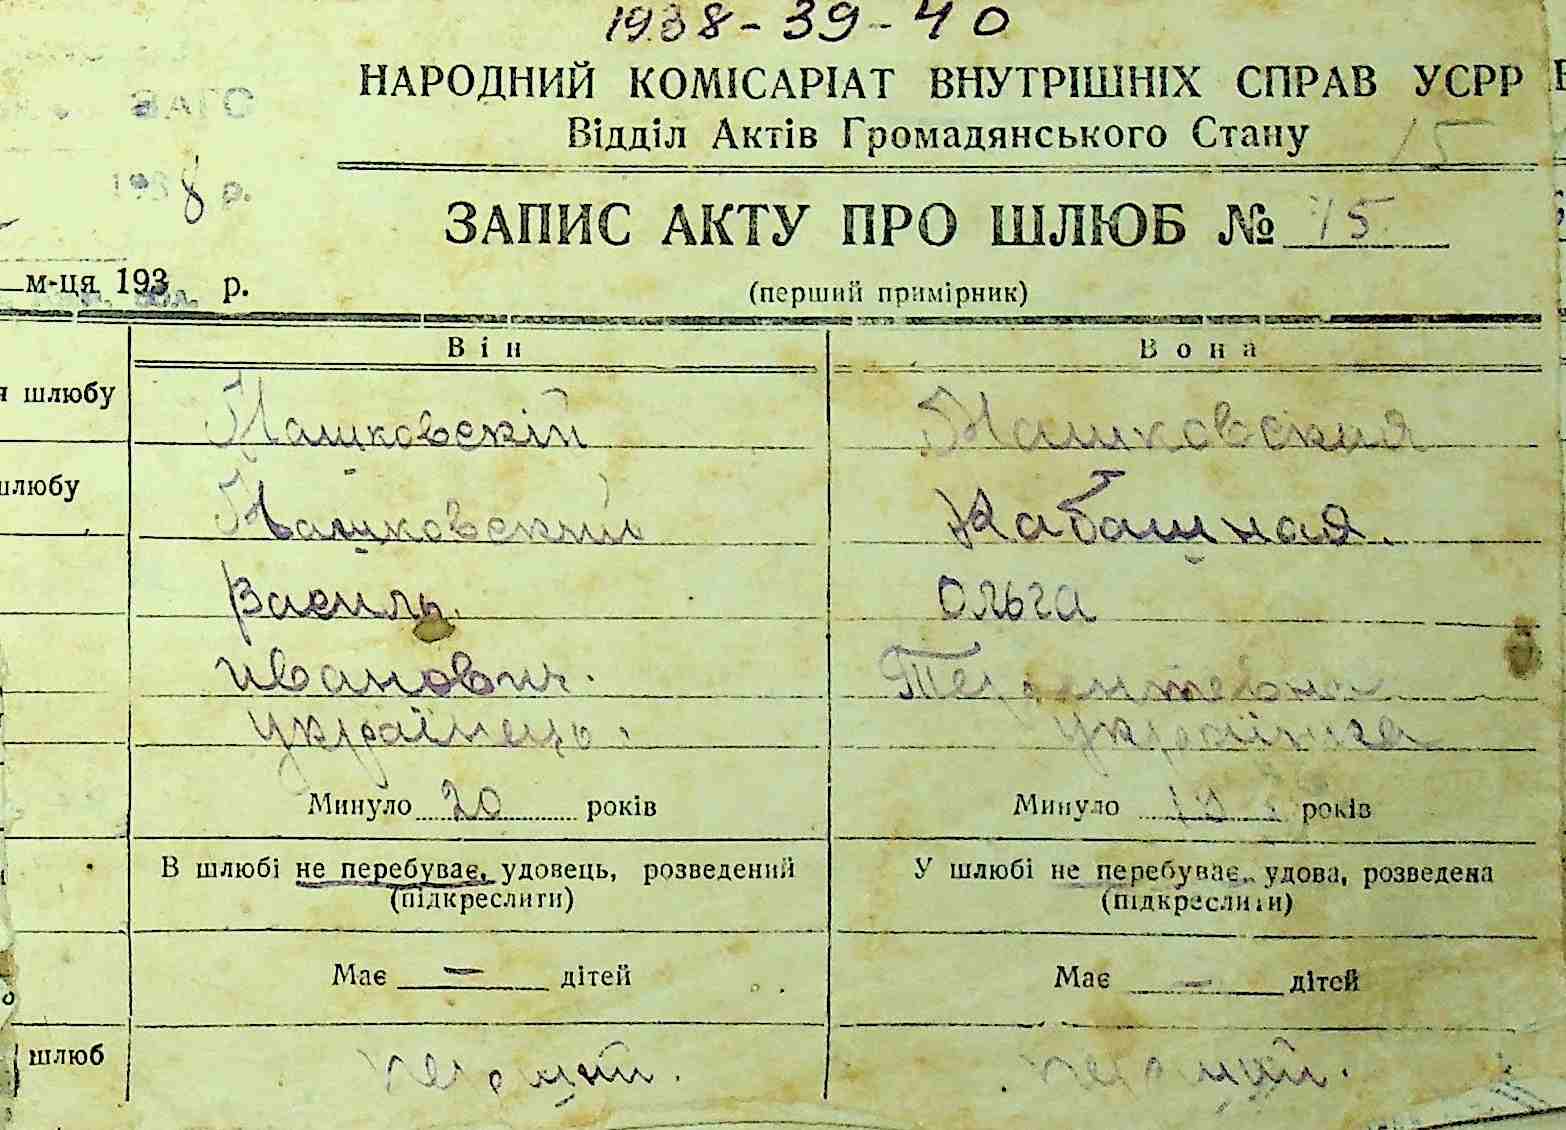 1938-39-40
НАРОДНИЙ КОМІСАРІАТ ВНУТРІШНІХ СПРАВ УСРР
ЗАГС
Відділ Актів Громадянського Стану 15
1938 р.
ЗАПИС АКТУ ПРО ШЛЮБ № 15
м-ця 193 р.
(перший примірник)
Він Вона
шлюбу Пашковскій Пашковская
шлюбу Пашковский Кабашная.
Василь Ольга
Иванович. Терентевна
українець. українка
Минуло 20 років Минуло років
В шлюбі не перебуває, удовець, розведений У шлюбі не перебуває, удова, розведена
(підкреслити) (підкреслити)
Має — дітей Має — дітей
шлюб перший. перший.